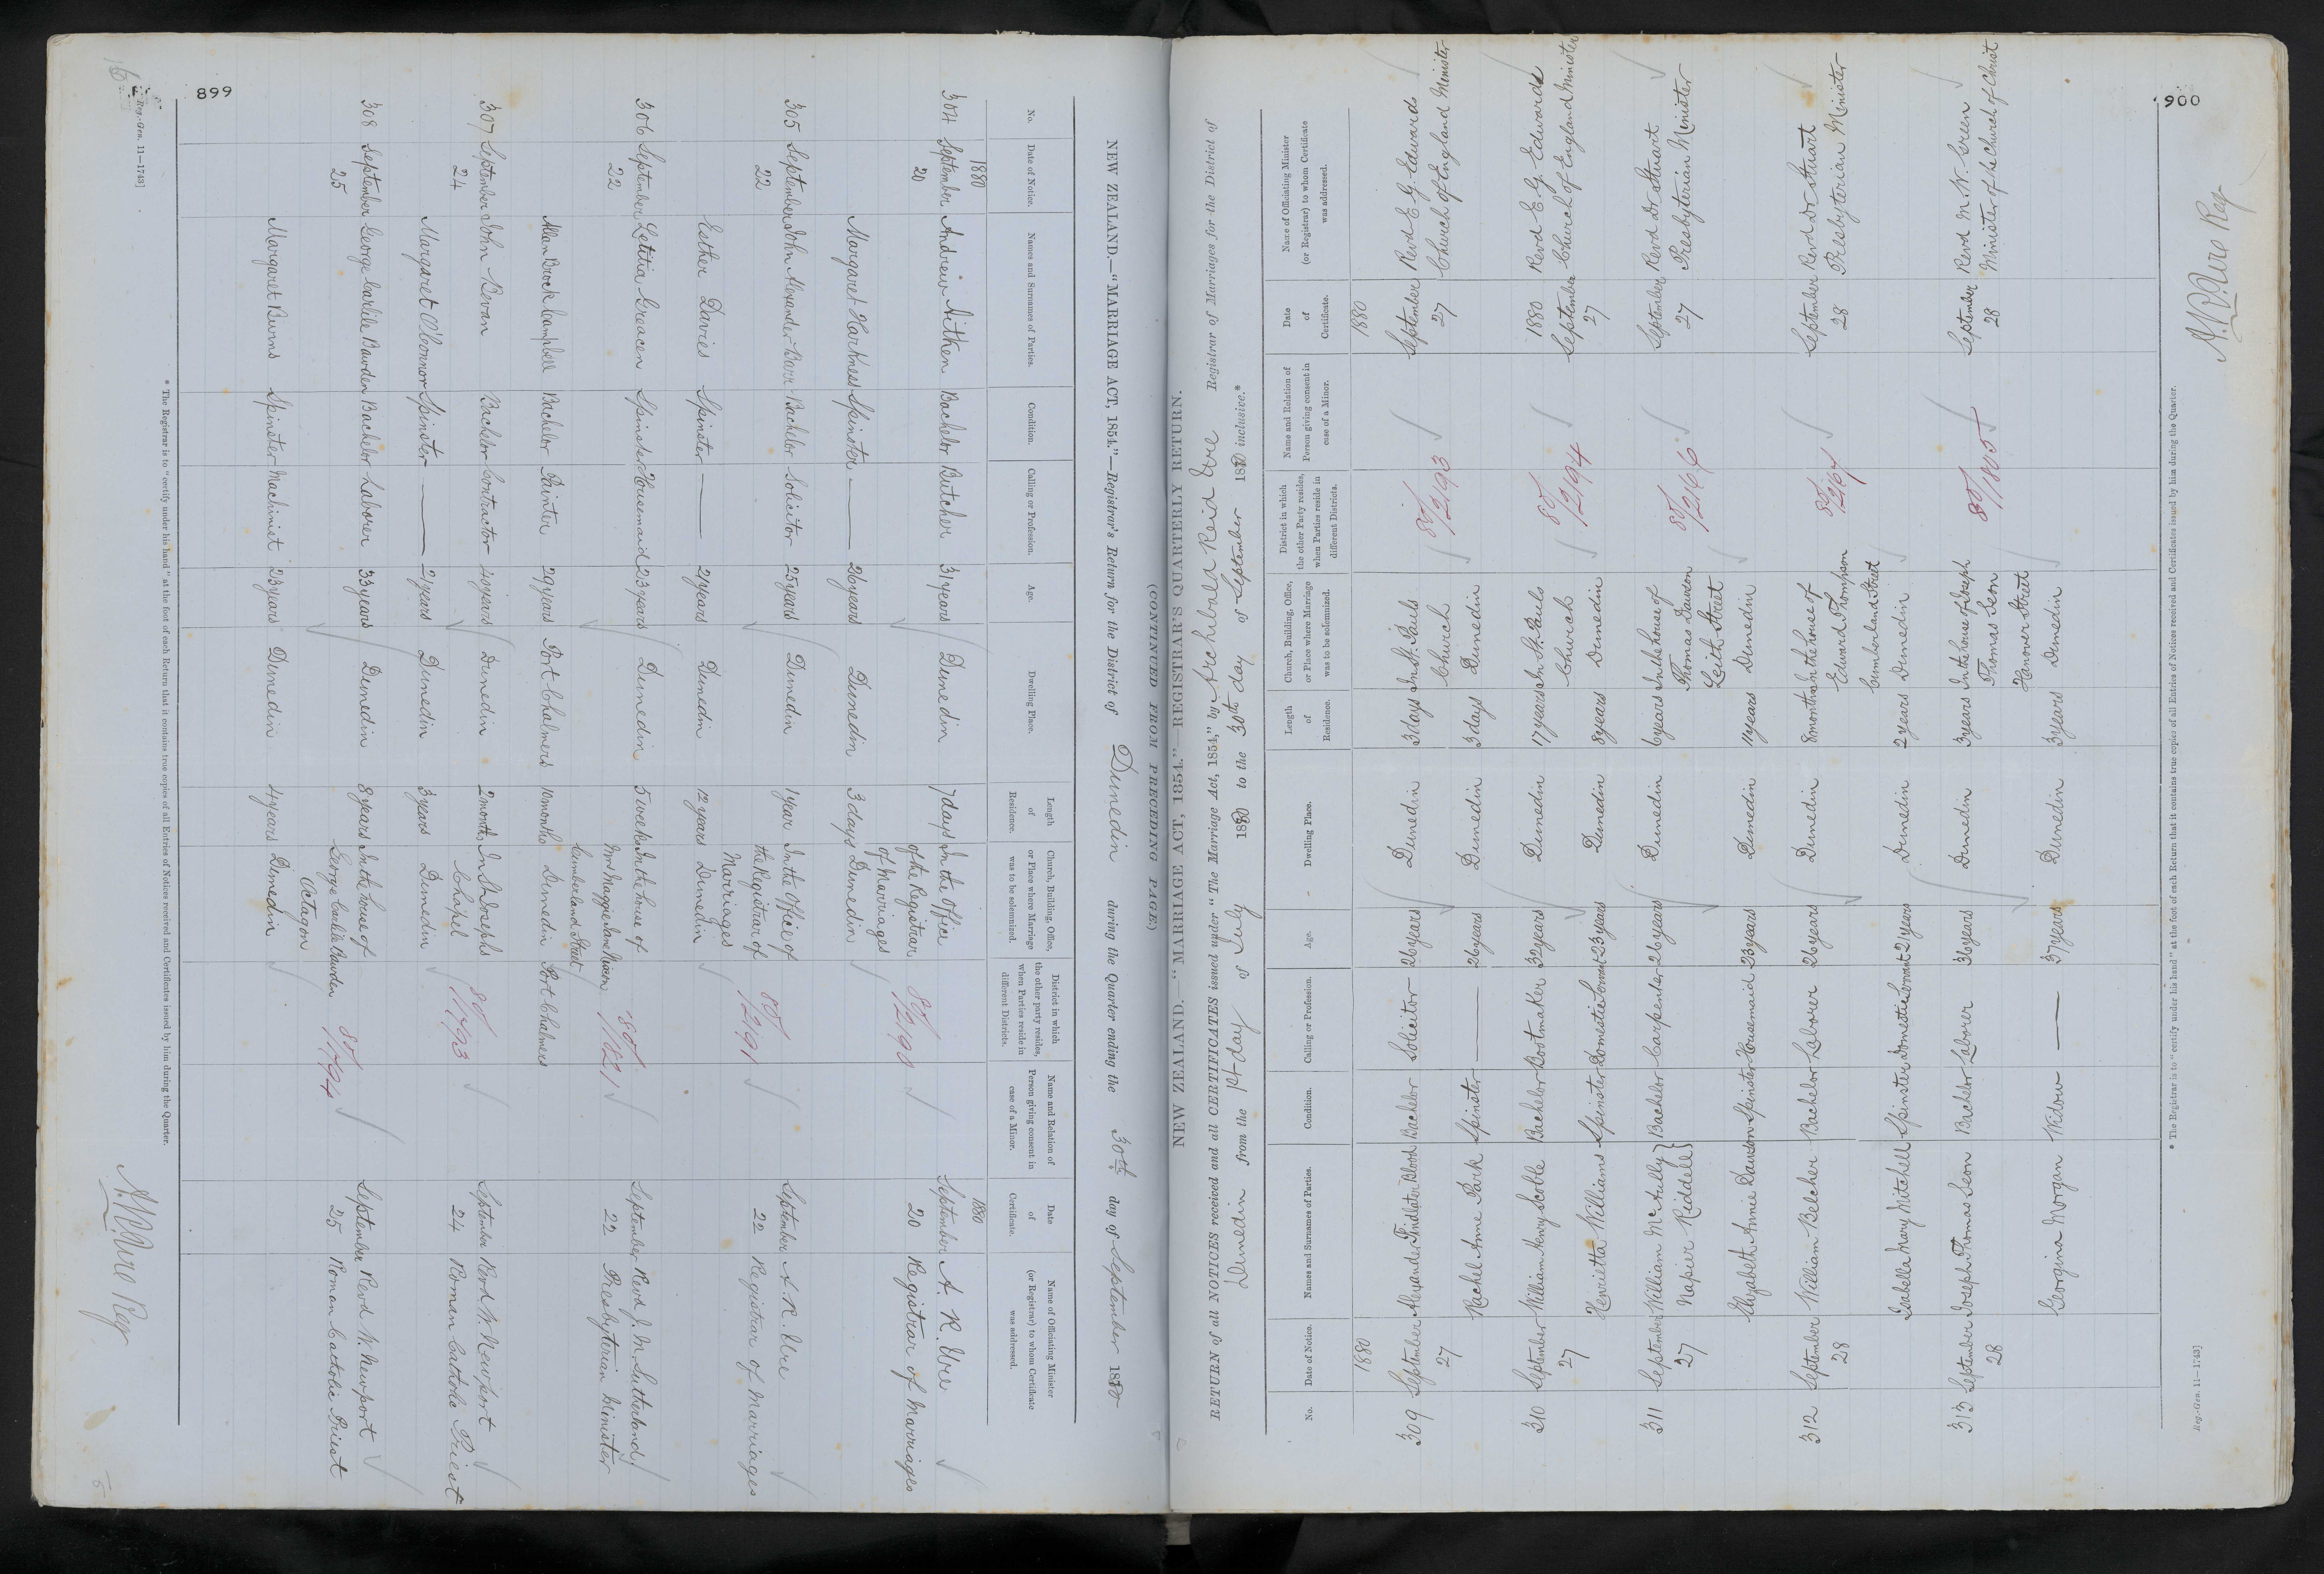 899
NEW ZEALAND.—"MARRIAGE ACT, 1854."—Registrar's Return for the District of Dunedin during the Quarter ending the 30th day of September 1880
No.
Date of Notice.
Names and Surnames of Parties.
Condition.
Calling or Profession.
Age.
Dwelling Place.
Length of Residence.
Church, Building, Office, or Place where Marriage was to be solemnized.
District in which the other party resides, when Parties reside in different Districts.
Name and Relation of Person giving consent in case of a Minor.
Date of Certificate.
Name of Officiating Minister (or Registrar) to whom Certificate was addressed.
1880 1880
304 September 20 Andrew Aitken Bachelor Butcher 31 years Dunedin 7 days In the Office of the Registrar of Marriages 80/2190 September 20 A. R. Ure Registrar of Marriages
Margaret Harkness Spinster — 26 years Dunedin 3 days Dunedin
305 September 22 John Alexander Barr Bachelor Solicitor 25 years Dunedin 1 year In the Office of the Registrar of Marriages 80/2191 September 22 A. R. Ure Registrar of Marriages
Esther Davies Spinster — 21 years Dunedin 12 years Dunedin
306 September 22 Letitia Greacen Spinster Housemaid 23 years Dunedin 5 weeks In the house of Mrs Maggie Jane Nixon Cumberland Street 80/1821 September 22 Revd J. M. Sutherland Presbyterian Minister
Allan Brock Campbell Bachelor Painter 29 years Port Chalmers 10 months Dunedin Port Chalmers
307 September 24 John Bevan Bachelor Contractor 40 years Dunedin 2 months In St Josephs Chapel 80/1793 September 24 Revd W. Newport Roman Catholic Priest
Margaret O'Connor Spinster — 21 years Dunedin 3 years Dunedin
308 September 25 George Carlile Bawden Bachelor Laborer 33 years Dunedin 8 years In the house of George Carlile Bawden Octagon 80/1794 September 25 Revd W. Newport Roman Catholic Priest
Margaret Burns Spinster Machinist 23 years Dunedin 4 years Dunedin
* The Registrar is to "certify under his hand" at the foot of each Return that it contains true copies of all Entries of Notices received and Certificates issued by him during the Quarter.
Reg.-Gen. 11—1743]
A. R. Ure Reg
900
(CONTINUED FROM PRECEDING PAGE)
NEW ZEALAND.—"MARRIAGE ACT, 1854."—REGISTRAR'S QUARTERLY RETURN.
RETURN of all NOTICES received and all CERTIFICATES issued under "The Marriage Act, 1854," by Archibald Reid Ure Registrar of Marriages for the District of
Dunedin from the 1st day of July 1880 to the 30th day of September 1880 inclusive.*
No.
Date of Notice.
Names and Surnames of Parties.
Condition.
Calling or Profession.
Age.
Dwelling Place.
Length of Residence.
Church, Building, Office, or Place where Marriage was to be solemnized.
District in which the other Party resides, when Parties reside in different Districts.
Name and Relation of Person giving consent in case of a Minor.
Date of Certificate.
Name of Officiating Minister (or Registrar) to whom Certificate was addressed.
1880 1880
309 September 27 Alexander Findlater Blood Bachelor Solicitor 26 years Dunedin 3 days In St. Pauls Church 80/2193 September 27 Revd E. G. Edwards Church of England Minister
Rachel Anne Park Spinster — 26 years Dunedin 3 days Dunedin
310 September 27 William Henry Scoble Bachelor Bootmaker 32 years Dunedin 17 years In St. Pauls Church 80/2194 1880 September 27 Revd E. G. Edwards Church of England Minister
Henrietta Williams Spinster Domestic Servant 23 years Dunedin 8 years Dunedin
311 September 27 William McAully Napier Riddell Bachelor Carpenter 26 years Dunedin 6 years In the house of Thomas Dawson Leith Street 80/2166 September 27 Revd Dr Stuart Presbyterian Minister
Elizabeth Annie Dawson Spinster Housemaid 23 years Dunedin 11 years Dunedin
312 September 28 William Belcher Bachelor Laborer 26 years Dunedin 8 months In the house of Edward Thompson Cumberland Street 80/2167 September 28 Revd Dr Stuart Presbyterian Minister
Isabella Mary Mitchell Spinster Domestic Servant 21 years Dunedin 2 years Dunedin
313 September 28 Joseph Thomas Leon Bachelor Laborer 36 years Dunedin 3 years In the house of Joseph Thomas Leon Hanover Street 80/1805 September 28 Revd M. W. Green Minister of the Church of Christ
Georgina Morgan Widow — 37 years Dunedin 3 years Dunedin
* The Registrar is to "certify under his hand" at the foot of each Return that it contains true copies of all Entries of Notices received and Certificates issued by him during the Quarter.
Reg.-Gen. 11—1743]
A. R. Ure Reg